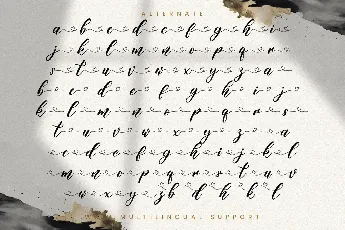 ALTERNATE
a b c d e f g h i
j k l m n o p q r
s t u v w x y z a
b c d e f g h i j
k l m n o p q r s
t u v w x y z a
c d e f g h i j k l
m n o p q r s t u v
w x y z b d h k l
MULTILINGUAL SUPPORT